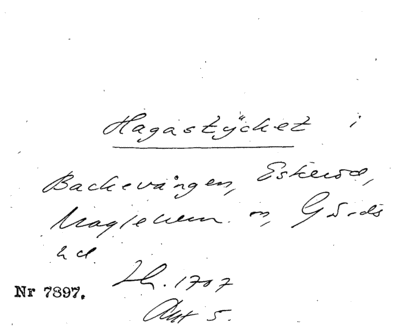 Hagastycket i
Backevången, Eskerod,
Maglehem sn, Gärds
hd.
Lh. 1707
Akt 5.
Nr 7897.